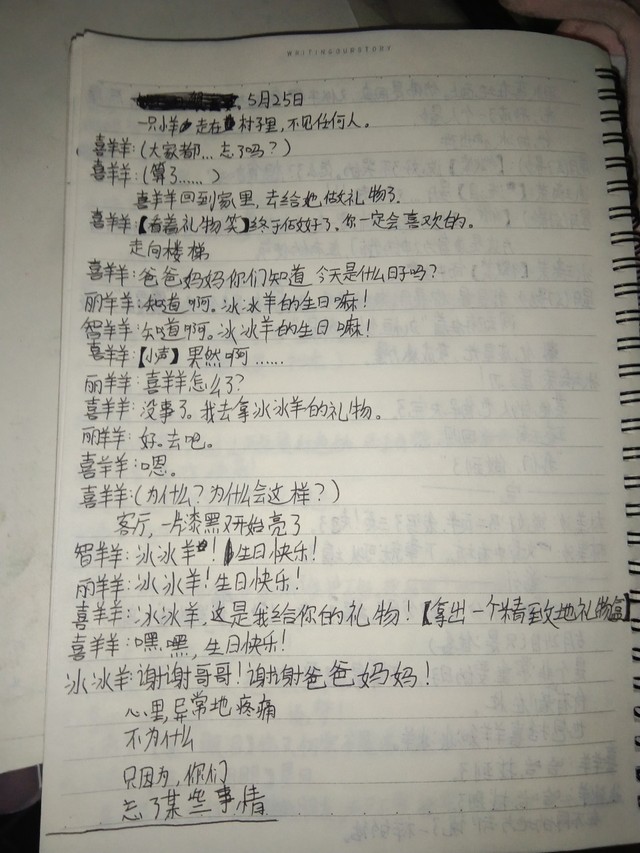 WRITINGOURSTORY
5月25日
一只小羊走在村子里,不见任何人。
喜羊羊:(大家都...忘了吗?)
喜羊羊:(算了......)
喜羊羊回到家里,去给她做礼物了.
喜羊羊【看着礼物笑】终于做好了。你一定会喜欢的。
走向楼梯
喜羊羊:爸爸妈妈你们知道 今天是什么日子吗?
丽羊羊:知道啊。冰冰羊的生日嘛!
智羊羊:知道啊。冰冰羊的生日嘛!
喜羊羊:【小声】果然啊......
丽羊羊:喜羊羊怎么了?
喜羊羊:没事了。我去拿冰冰羊的礼物。
丽羊羊:好。去吧。
喜羊羊:嗯。
喜羊羊:(为什么?为什么会这样?)
客厅,一片漆黑又开始亮了
智羊羊:冰冰羊!生日快乐!
丽羊羊:冰冰羊!生日快乐!
喜羊羊:冰冰羊,这是我给你的礼物!【拿出一个精致地礼物盒】
喜羊羊:嘿嘿,生日快乐!
冰冰羊:谢谢哥哥!谢谢爸爸妈妈!
心里异常地疼痛
不为什么
只因为,你们
忘了某些事情